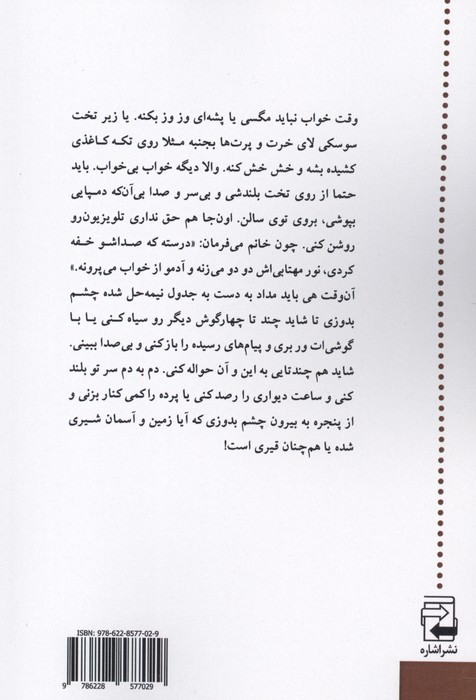 وقت خواب نباید مگسی یا پشه‌ای وز وز بکنه. یا زیر تخت
سوسکی لای خرت و پرت‌ها بجنبه مثلا روی تکه کاغذی
کشیده بشه و خش خش کنه. والا دیگه خواب بی‌خواب. باید
حتما از روی تخت بلندشی و بی‌سر و صدا بی‌آن‌که دمپایی
بپوشی، بروی توی سالن. اون‌جا هم حق نداری تلویزیون‌رو
روشن کنی. چون خانم می‌فرمان: «درسته که صداشو خفه
کردی، نور مهتابی‌اش دو دو می‌زنه و آدمو از خواب می‌پرونه.»
آن‌وقت هی باید مداد به دست به جدول نیمه‌حل شده چشم
بدوزی تا شاید چند تا چهارگوش دیگر رو سیاه کنی یا با
گوشی‌ات ور بری و پیام‌های رسیده را بازکنی و بی‌صدا ببینی.
شاید هم چندتایی به این و آن حواله کنی. دم به دم سر تو بلند
کنی و ساعت دیواری را رصد کنی یا پرده را کمی کنار بزنی و
از پنجره به بیرون چشم بدوزی که آیا زمین و آسمان شیری
شده یا هم‌چنان قیری است!
نشر اشاره
ISBN: 978-622-8577-02-9
9 786228 577029